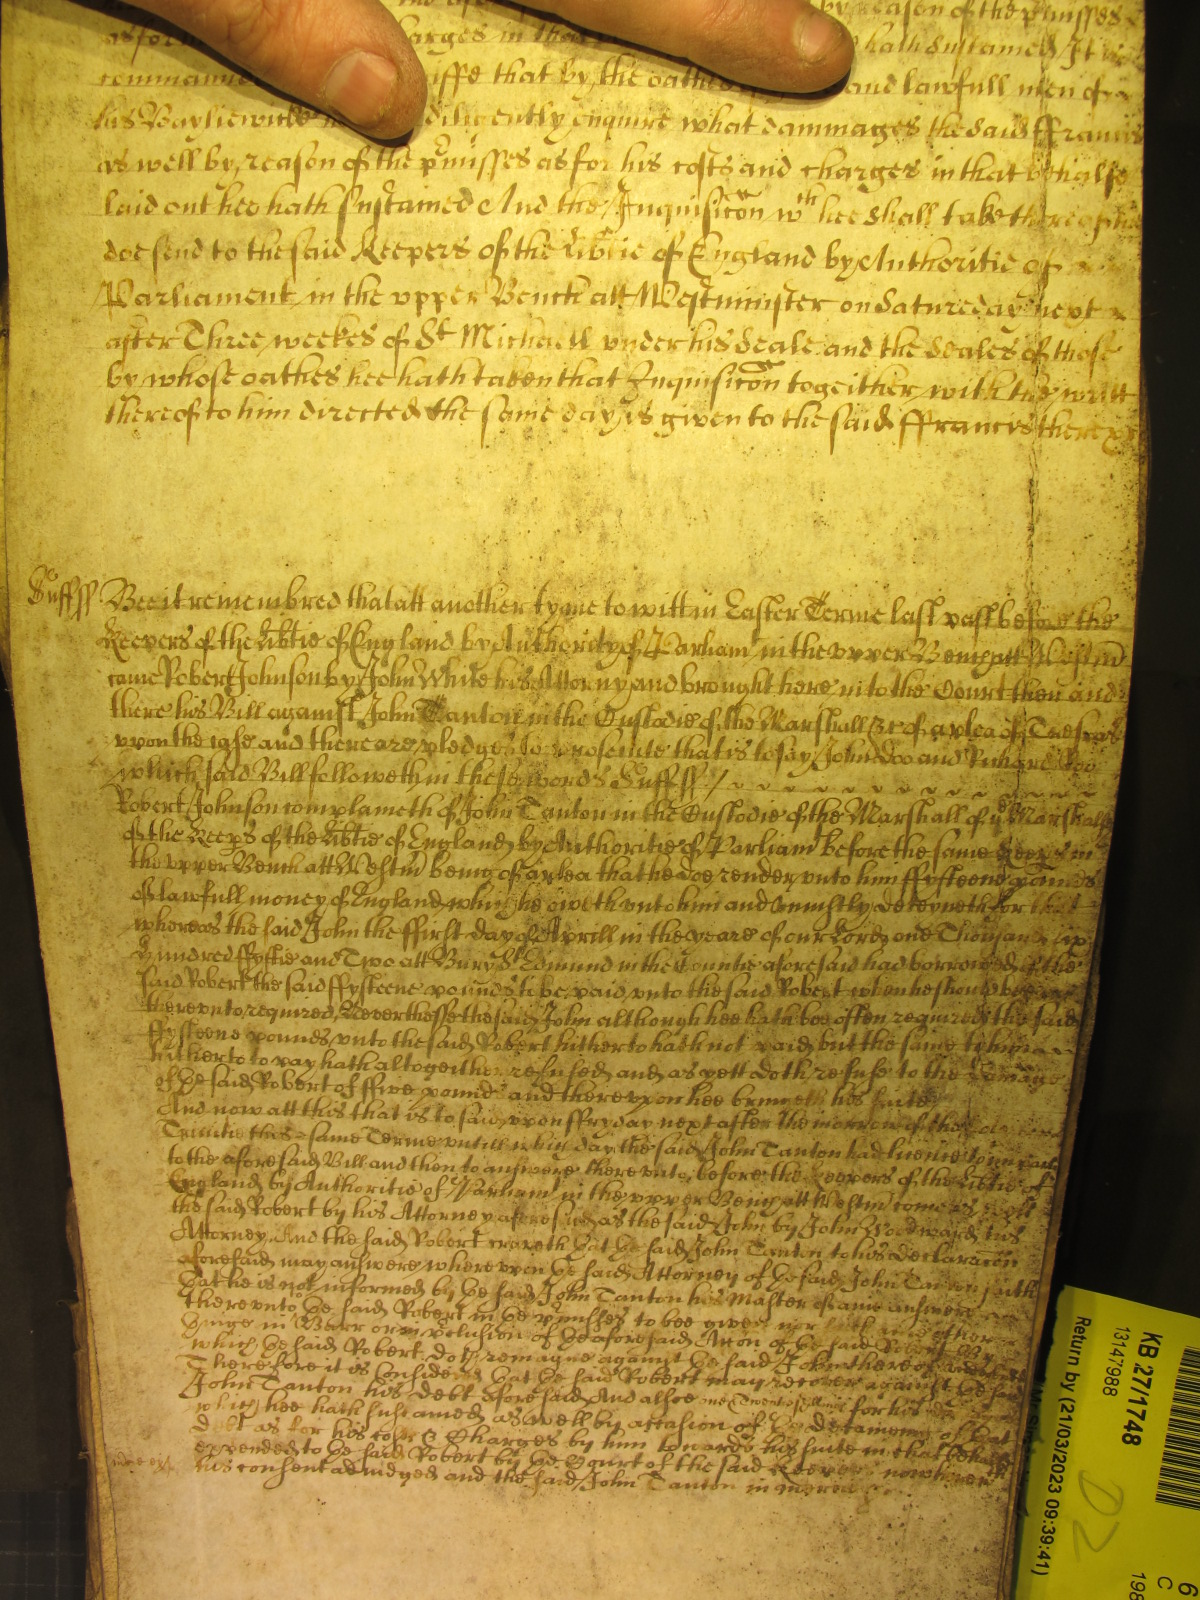 by reason of the pmisses
asfor charges in that hath sustained It is
commanded that by the oathes and lawfull men of
his Bayliewicke diligently enquire what dammages the said ffrancis
as well by reason of the pmisses as for his costs and charges in that behalfe
laid out hee hath sustained And the Inquisicon wch hee shall take thereof
doe send to the said Keepers of the Libtie of England by Authoritie of
Parliament in the vpper Bench att Westminster on Satureday next
after Three weekes of St Michaell vnder his Seale and the Seales of those
by whose oathes hee hath taken that Inquisicon togeither with the writt
thereof to him directed the same day is given to the said ffrancis there &c
Suffff Bee it remembred that att another tyme to witt in Easter Terme last past before the
Keepers of the Libtie of England by Authority of Parliam in the vpper Bench att Westm
came Robert Johnson by John White his Attorny and brought here into the Court then and
there his Bill against John Tanton in the Custodie of the Marshall &c of a plea of Trespas
vpon the case and there are pledges to prosecute that is to say John doo and Richard Roo
which said Bill followeth in these words Suffff /
Robert Johnson complaineth of John Tanton in the Custodie of the Marshall of ye Marshall
of the Keeps of the Libtie of England by Authoritie of Parliam before the same Keeps in
the vpper Bench att Westm being of a plea that he doe render vnto him ffyfteene pounds
of lawfull money of England which he oweth vnto him and vniustly deteyneth for that
whereas the said John the ffirst day of Aprill in the yeare of our Lord one Thousand six
hundred ffyftie and Two att Bury St Edmund in the Countie aforesaid had borrowed of the
said Robert the said ffyfteene pounds to be paid vnto the said Robert when he should bee
therevnto required Neverthesse the said John although hee hath bee often required the said
ffyfteene pounds vnto the said Robert hitherto hath not paid but the same to him
hitherto to pay hath altogeither refused and as yett doth refuse to the damage
of he said Robert of ffive pounds and therevpon hee bringeth his suite
And now att this that is to say vpon ffryday next after the morrow of the
Trinitie this same Terme vntill which day the said John Tanton had licence to imparle
to the aforesaid Bill and then to answere therevnto before the Keepers of the Libtie of
England by Authoritie of Parliam in the vpper Bench att Westm comes as well
the said Robert by his Attorney aforesaid as the said John by John Woodward his
Attorney And the said Robert craveth hat he said John Tanton to his declaracon
aforesaid may answere wherevpon he said Attorney of he said John Tanton saith
hat he is not informed by he said John Tanton his Master of anie answere
therevnto he said Robert in he pmisses to bee given nor saith anie other
thinge in Barr or in preclusion of he aforesaid Accon of he said Robert By
which he said Robert doth remayne against he said John thereof
Therefore it is Considered hat he said Robert may recover against he said
John Tanton his Debt aforesaid And alsoe for his
which hee hath sustained as well by occasion of he deteining of hat
debt as for his costs & Charges by him towards his suite in that behalfe
expended to he said Robert by he Court of the said Keepers now here with
his consent adiudged and the said John Tanton in mercie &c
KB 27/1748
13147988
Return by (21/03/2023 09:39:41)
D2